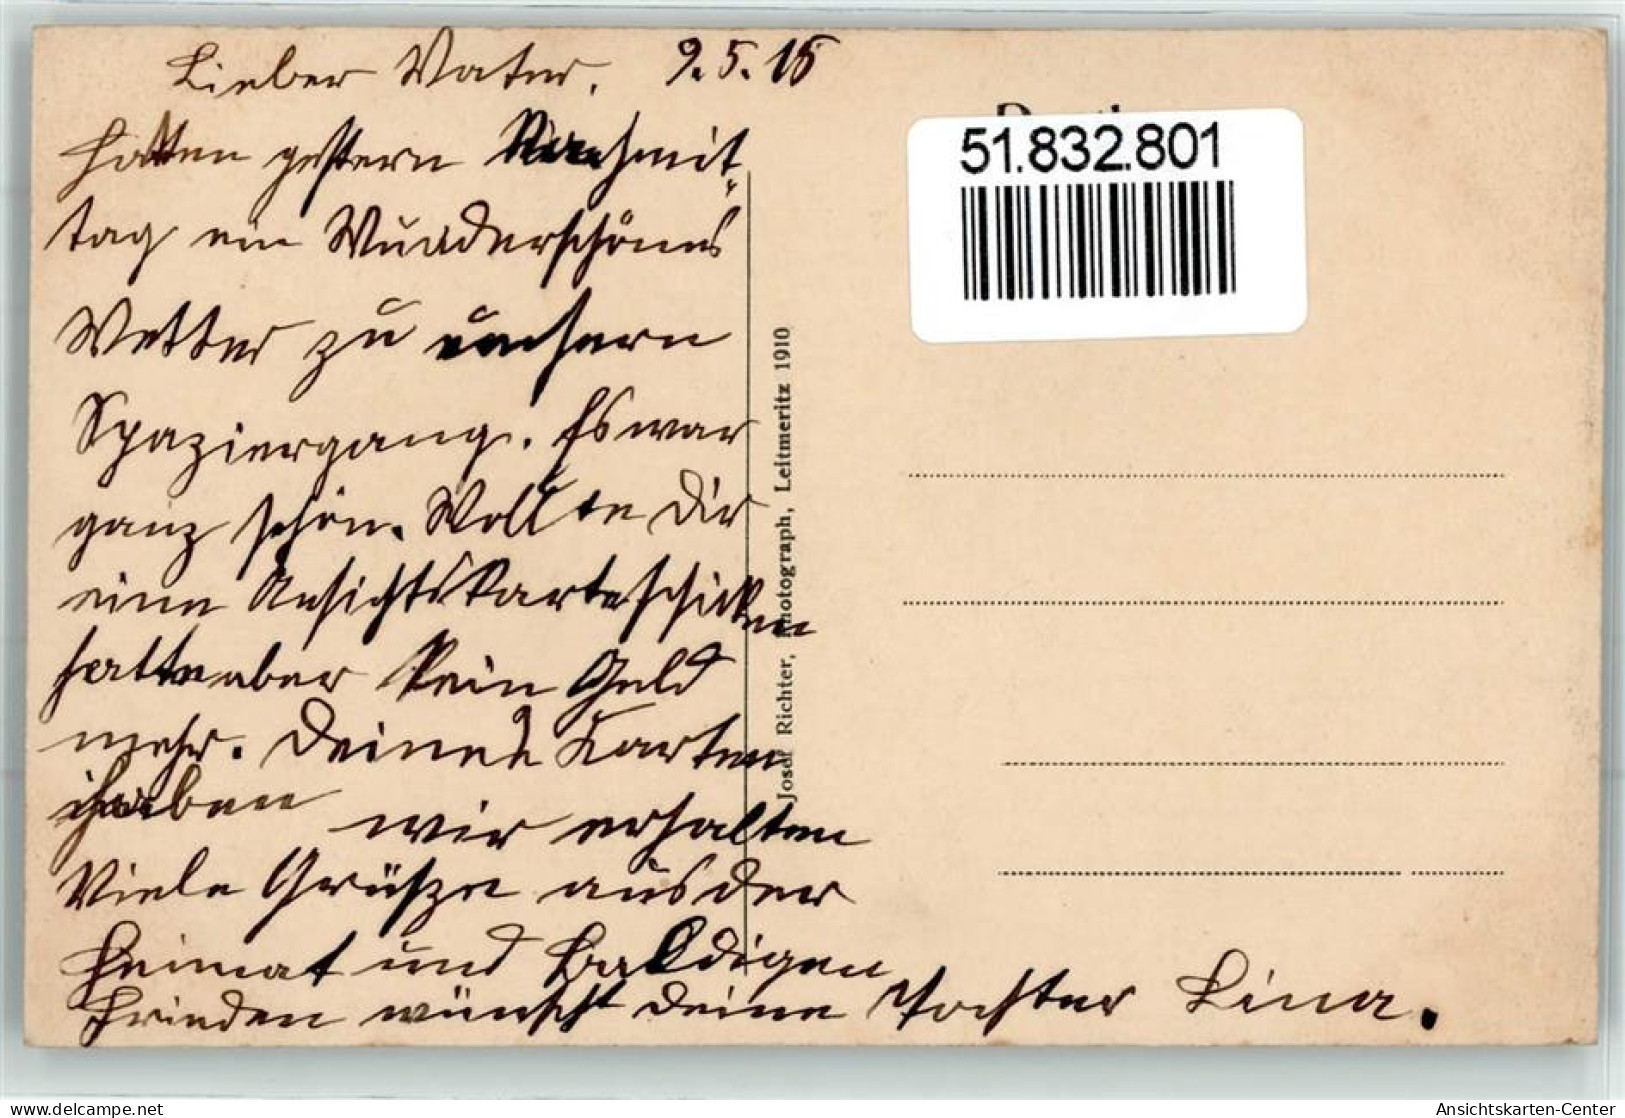 Lieber Vater. 9.5.15
hatten gestern Nachmit-
tag ein Wunderschönes
Wetter zu unsern
Spaziergang. Es war
ganz schön. Wollte Dir
eine Ansichtskarte schicken
hatte aber kein Geld
mehr. Deine Karten
haben wir erhalten
Viele Grüße aus der
Heimat und Baldigen
Frieden wünscht Deine Tochter Lina.
Josef Richter, Photograph, Leitmeritz 1910
51.832.801
delcampe.net
Ansichtskarten-Center